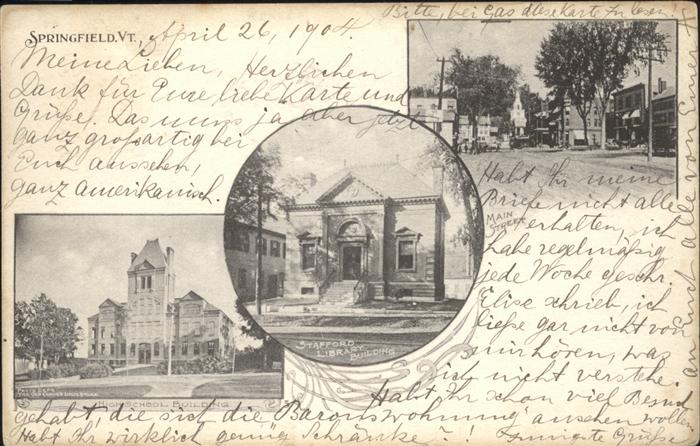 Bitte, bei Gas diese Karte zu lesen!
SPRINGFIELD, VT., April 26, 1904.
Meine Lieben, Herzlichen
Dank für Eure liebe Karte und
Grüße. Das muss ja aber jetzt
ganz großartig bei
Euch aussehen,
ganz amerikanisch.
MAIN STREET
Habt Ihr meine
Briefe nicht alle
erhalten, ich
habe regelmäßig
jede Woche geschr.
Elise schrieb, ich
ließe gar nicht von
mir hören, was
ich nicht verstehe.
STAFFORD LIBRARY BUILDING
HIGH SCHOOL BUILDING
Habt Ihr schon viel Besuch
gehabt, die sich die Baronswohnung ansehen wollen
Habt Ihr wirklich genug Schränke?! Innigste Grüsse
an Euch alle von Eurer